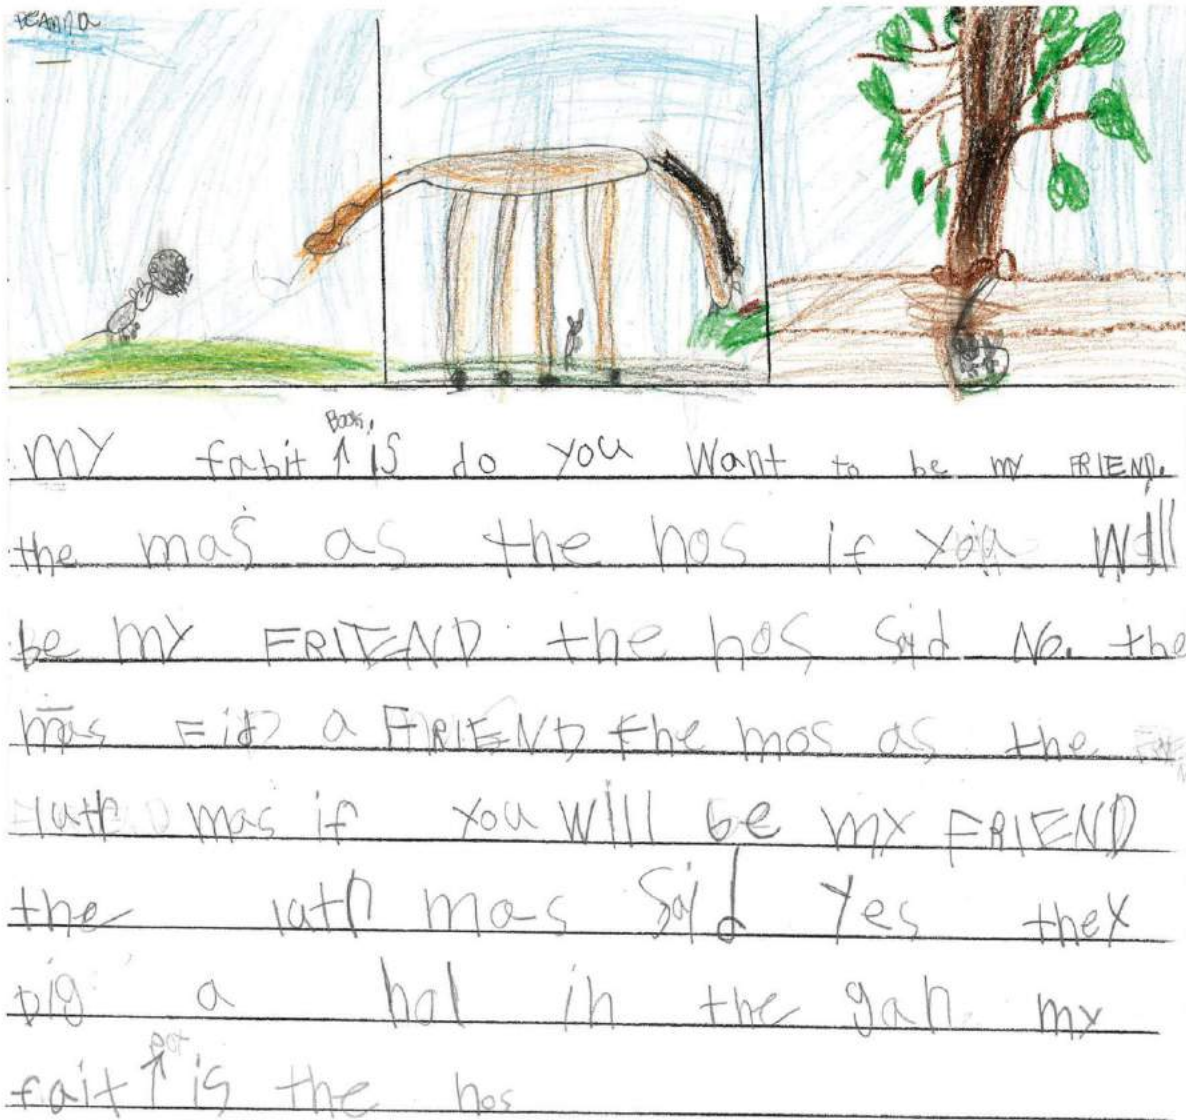 DEANNA
Book.
MY fabit ↑ is do you Want to be my FRIEND.
the mas as the hos if you Will
be my FRIEND the hos Said No. the
mas Fid a FRIEND the mos as the
latl mas if you Will be my FRIEND
the latl mas Said Yes they
Dig a hol in the gan my
fait ↑ is the hos